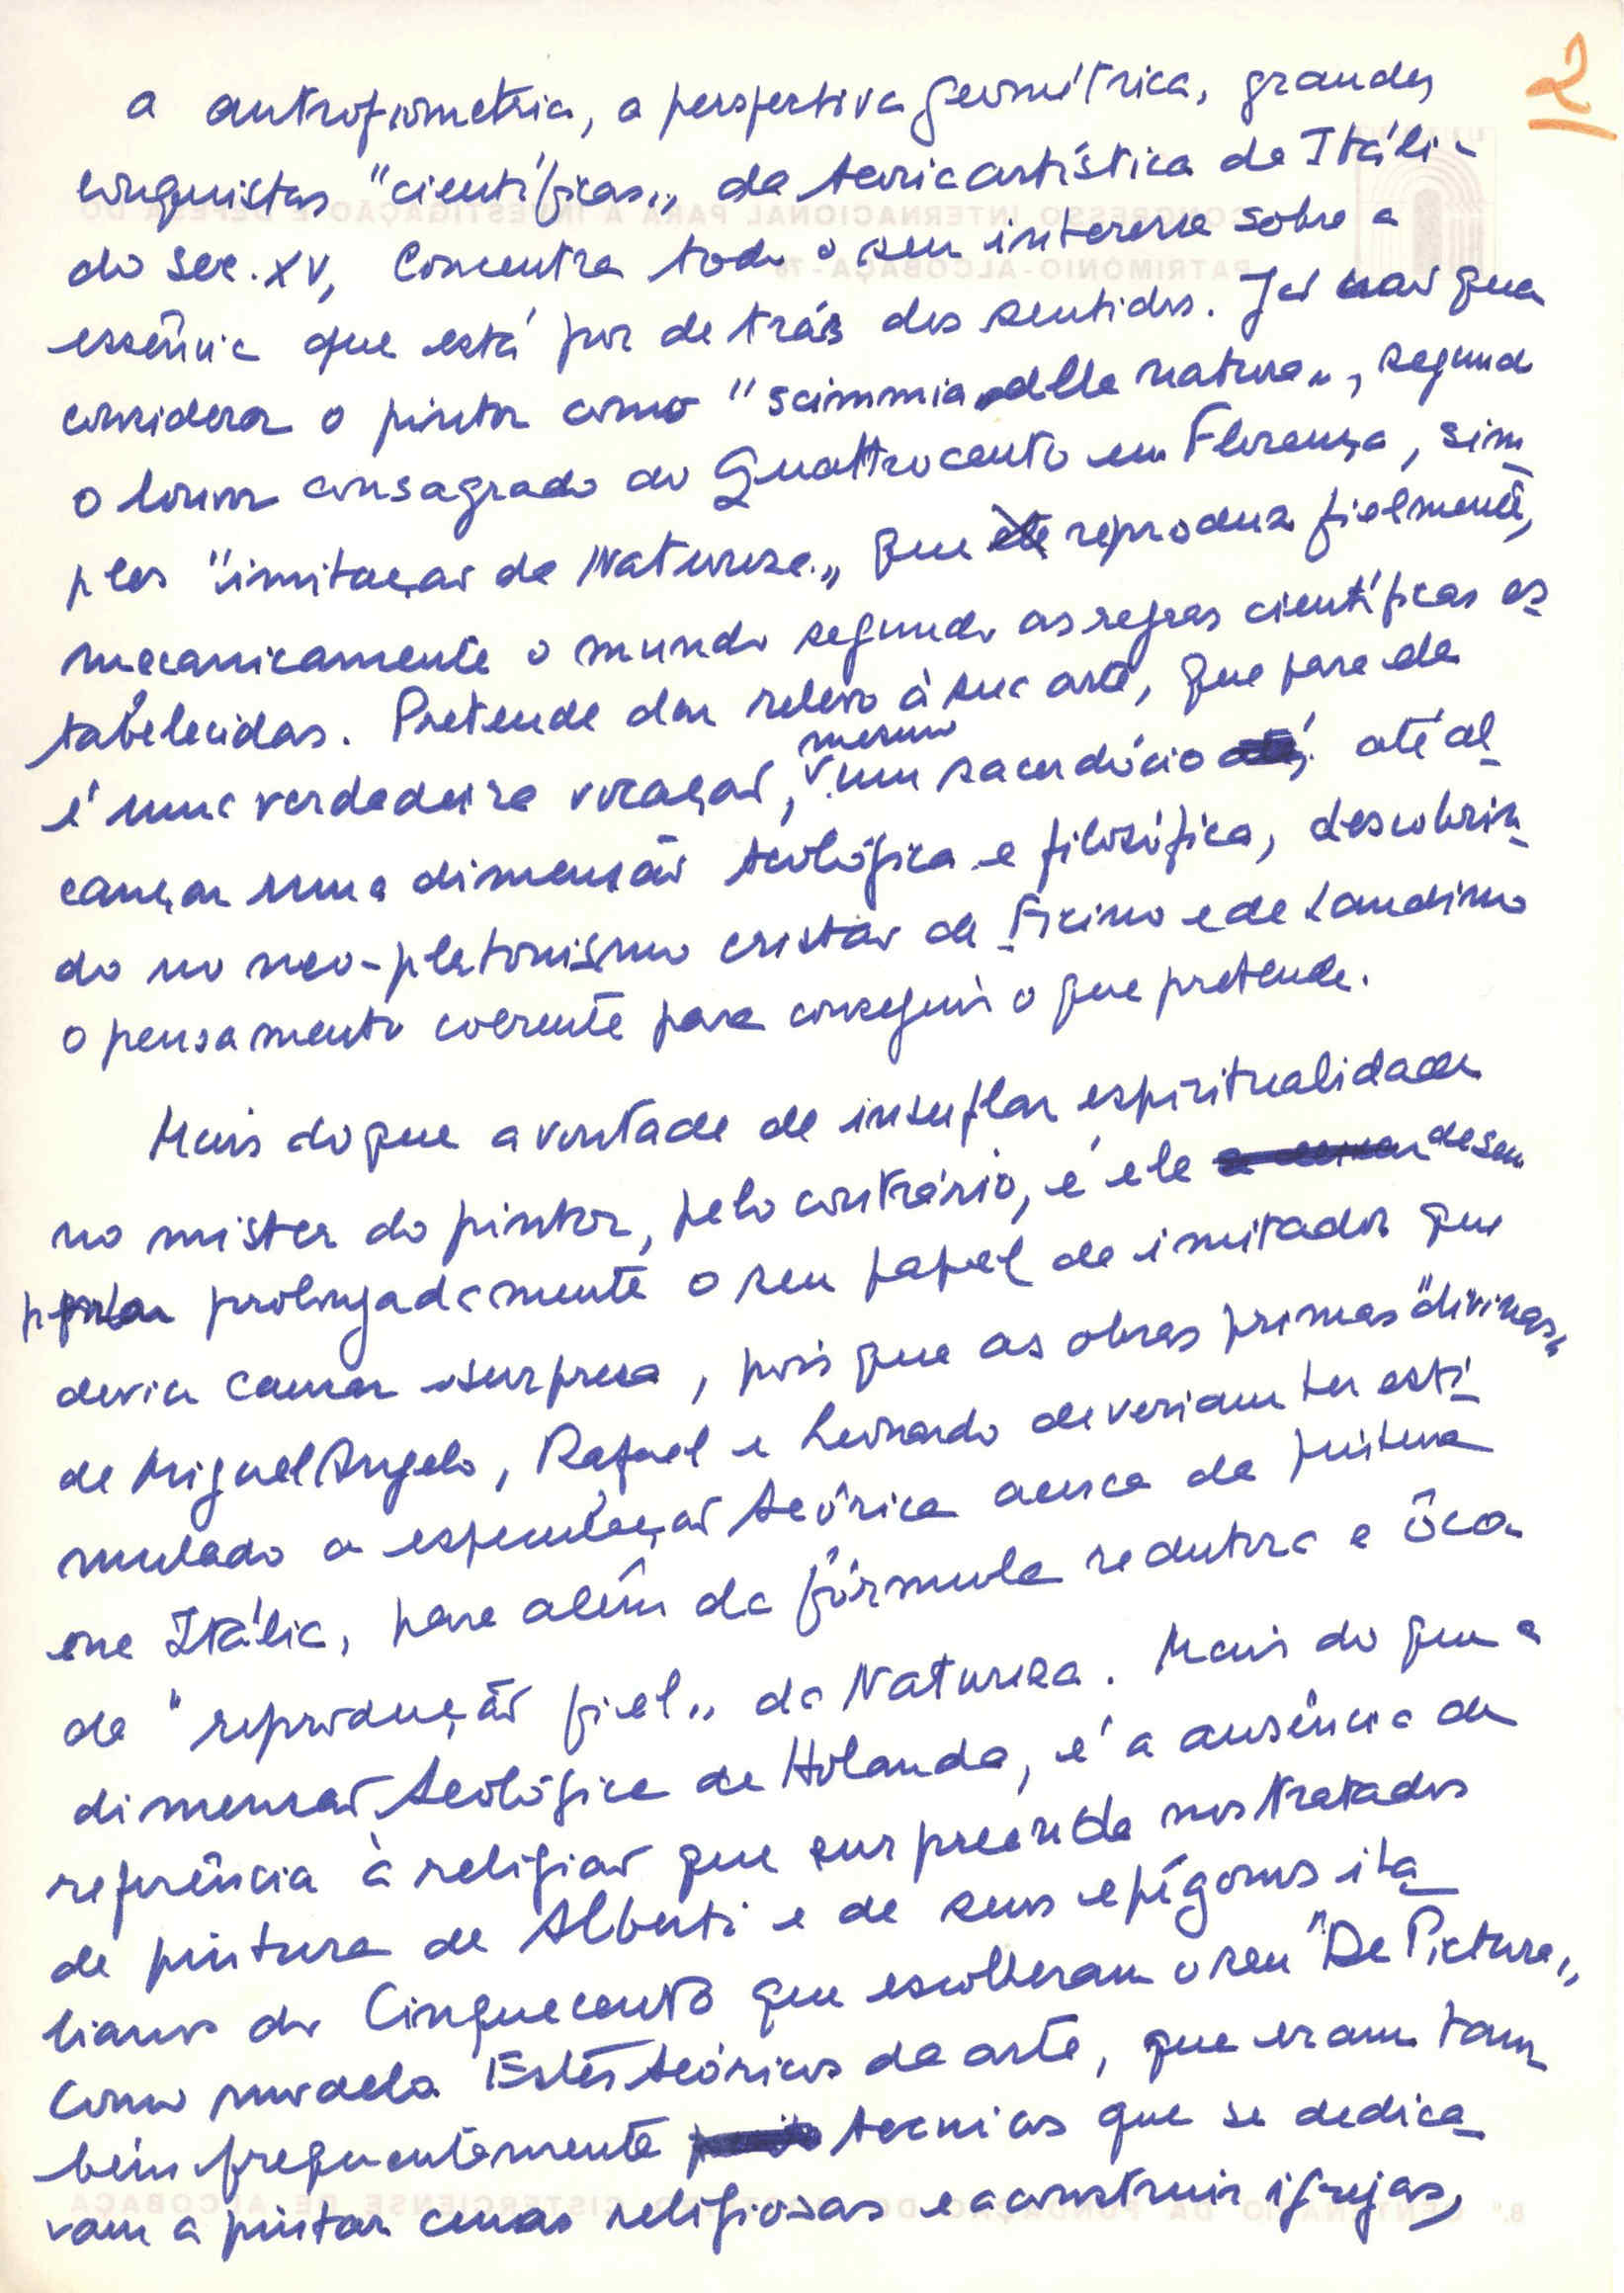 2
a antropometria, a perspectiva geométrica, grandes
conquistas "científicas„ da teoria artística da Itáli-
do sec. XV, Concentra todo o seu interesse sobre a
essência que está por de trás dos sentidos. Já não quer
considerar o pintor como "scimmia della natura„, segundo
o louvor consagrado do Quattrocento em Florença, sim
ples "imitação da Natureza„ que reproduz fielmente,
mecanicamente o mundo segundo as regras científicas es
tabelecidas. Pretende dar relevo à sua arte, que para ele
é uma verdadeira vocação, mesmo um sacerdócio, até al
cançar uma dimensão teológica e filosófica, descobrin
do no neo-platonismo cristão de Ficino e de Landino
o pensamento coerente para conseguir o que pretende.
Mais do que a vontade de insuflar espiritualidade
no mister do pintor, pelo contrário, é ele desem
prolongadamente o seu papel de imitador que
devia causar surpresa, pois que as obras primas "divinas„
de Miguel Angelo, Rafael e Leonardo deveriam ter esti
mulado a especulação teórica acerca da pintura
em Itália, para além da fórmula redutora e ôca
de "reprodução fiel„ da Natureza. Mais do que a
dimensão teológica de Holanda, é a ausência de
referência à religião que surpreende nos tratados
de pintura de Alberti e de seus epígonos ita
lianos do Cinquecento que escolheram o seu "De Pictura„
como modelo Estes teóricos da arte, que eram tam
bém frequentemente tecnicos que se dedica
vam a pintar cenas religiosas e a construir igrejas,
CONGRESSO INTERNACIONAL PARA A INVESTIGAÇÃO E DEFESA DO
PATRIMÓNIO - ALCOBAÇA - 78